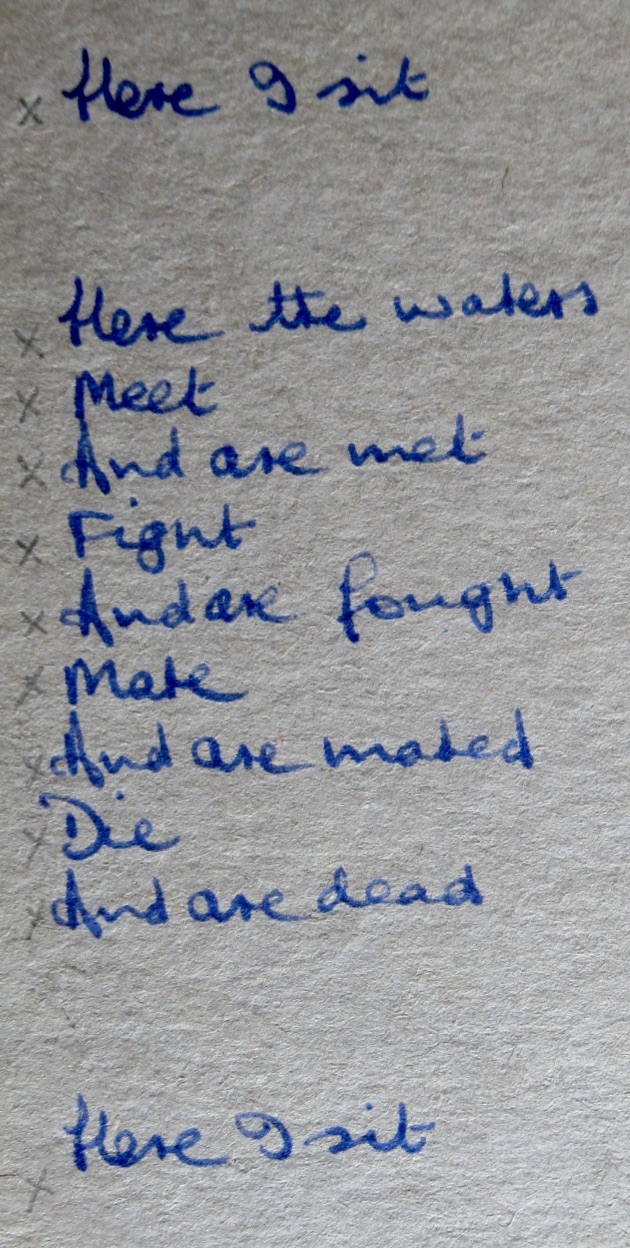 x Here I sit
x Here the waters
x Meet
x And are met
x Fight
x And are fought
x Mate
x And are mated
x Die
x And are dead
x Here I sit